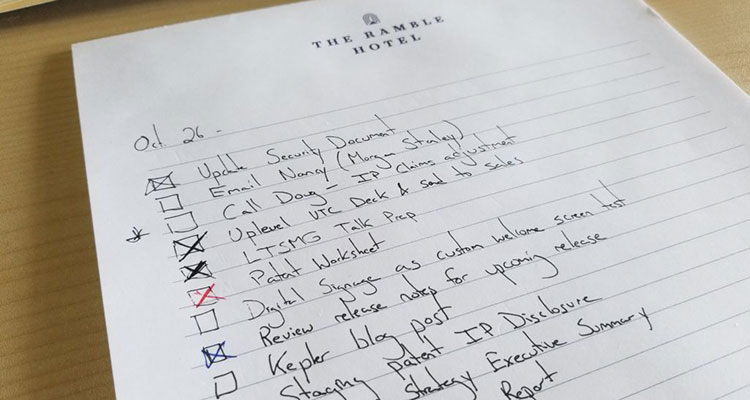 THE RAMBLE
HOTEL
Oct 26 -
Update Security Document
Email Nancy (Morgan Stanley)
Call Doug - IP Claims adjustment
Uplevel UTC Deck & send to sales
LTSMG Talk Prep
Patent Worksheet
Digital Signage as custom welcome screen test
Review release notes for upcoming release
Kepler blog post
Staging patent IP Disclosure
Strategy Executive Summary
Report